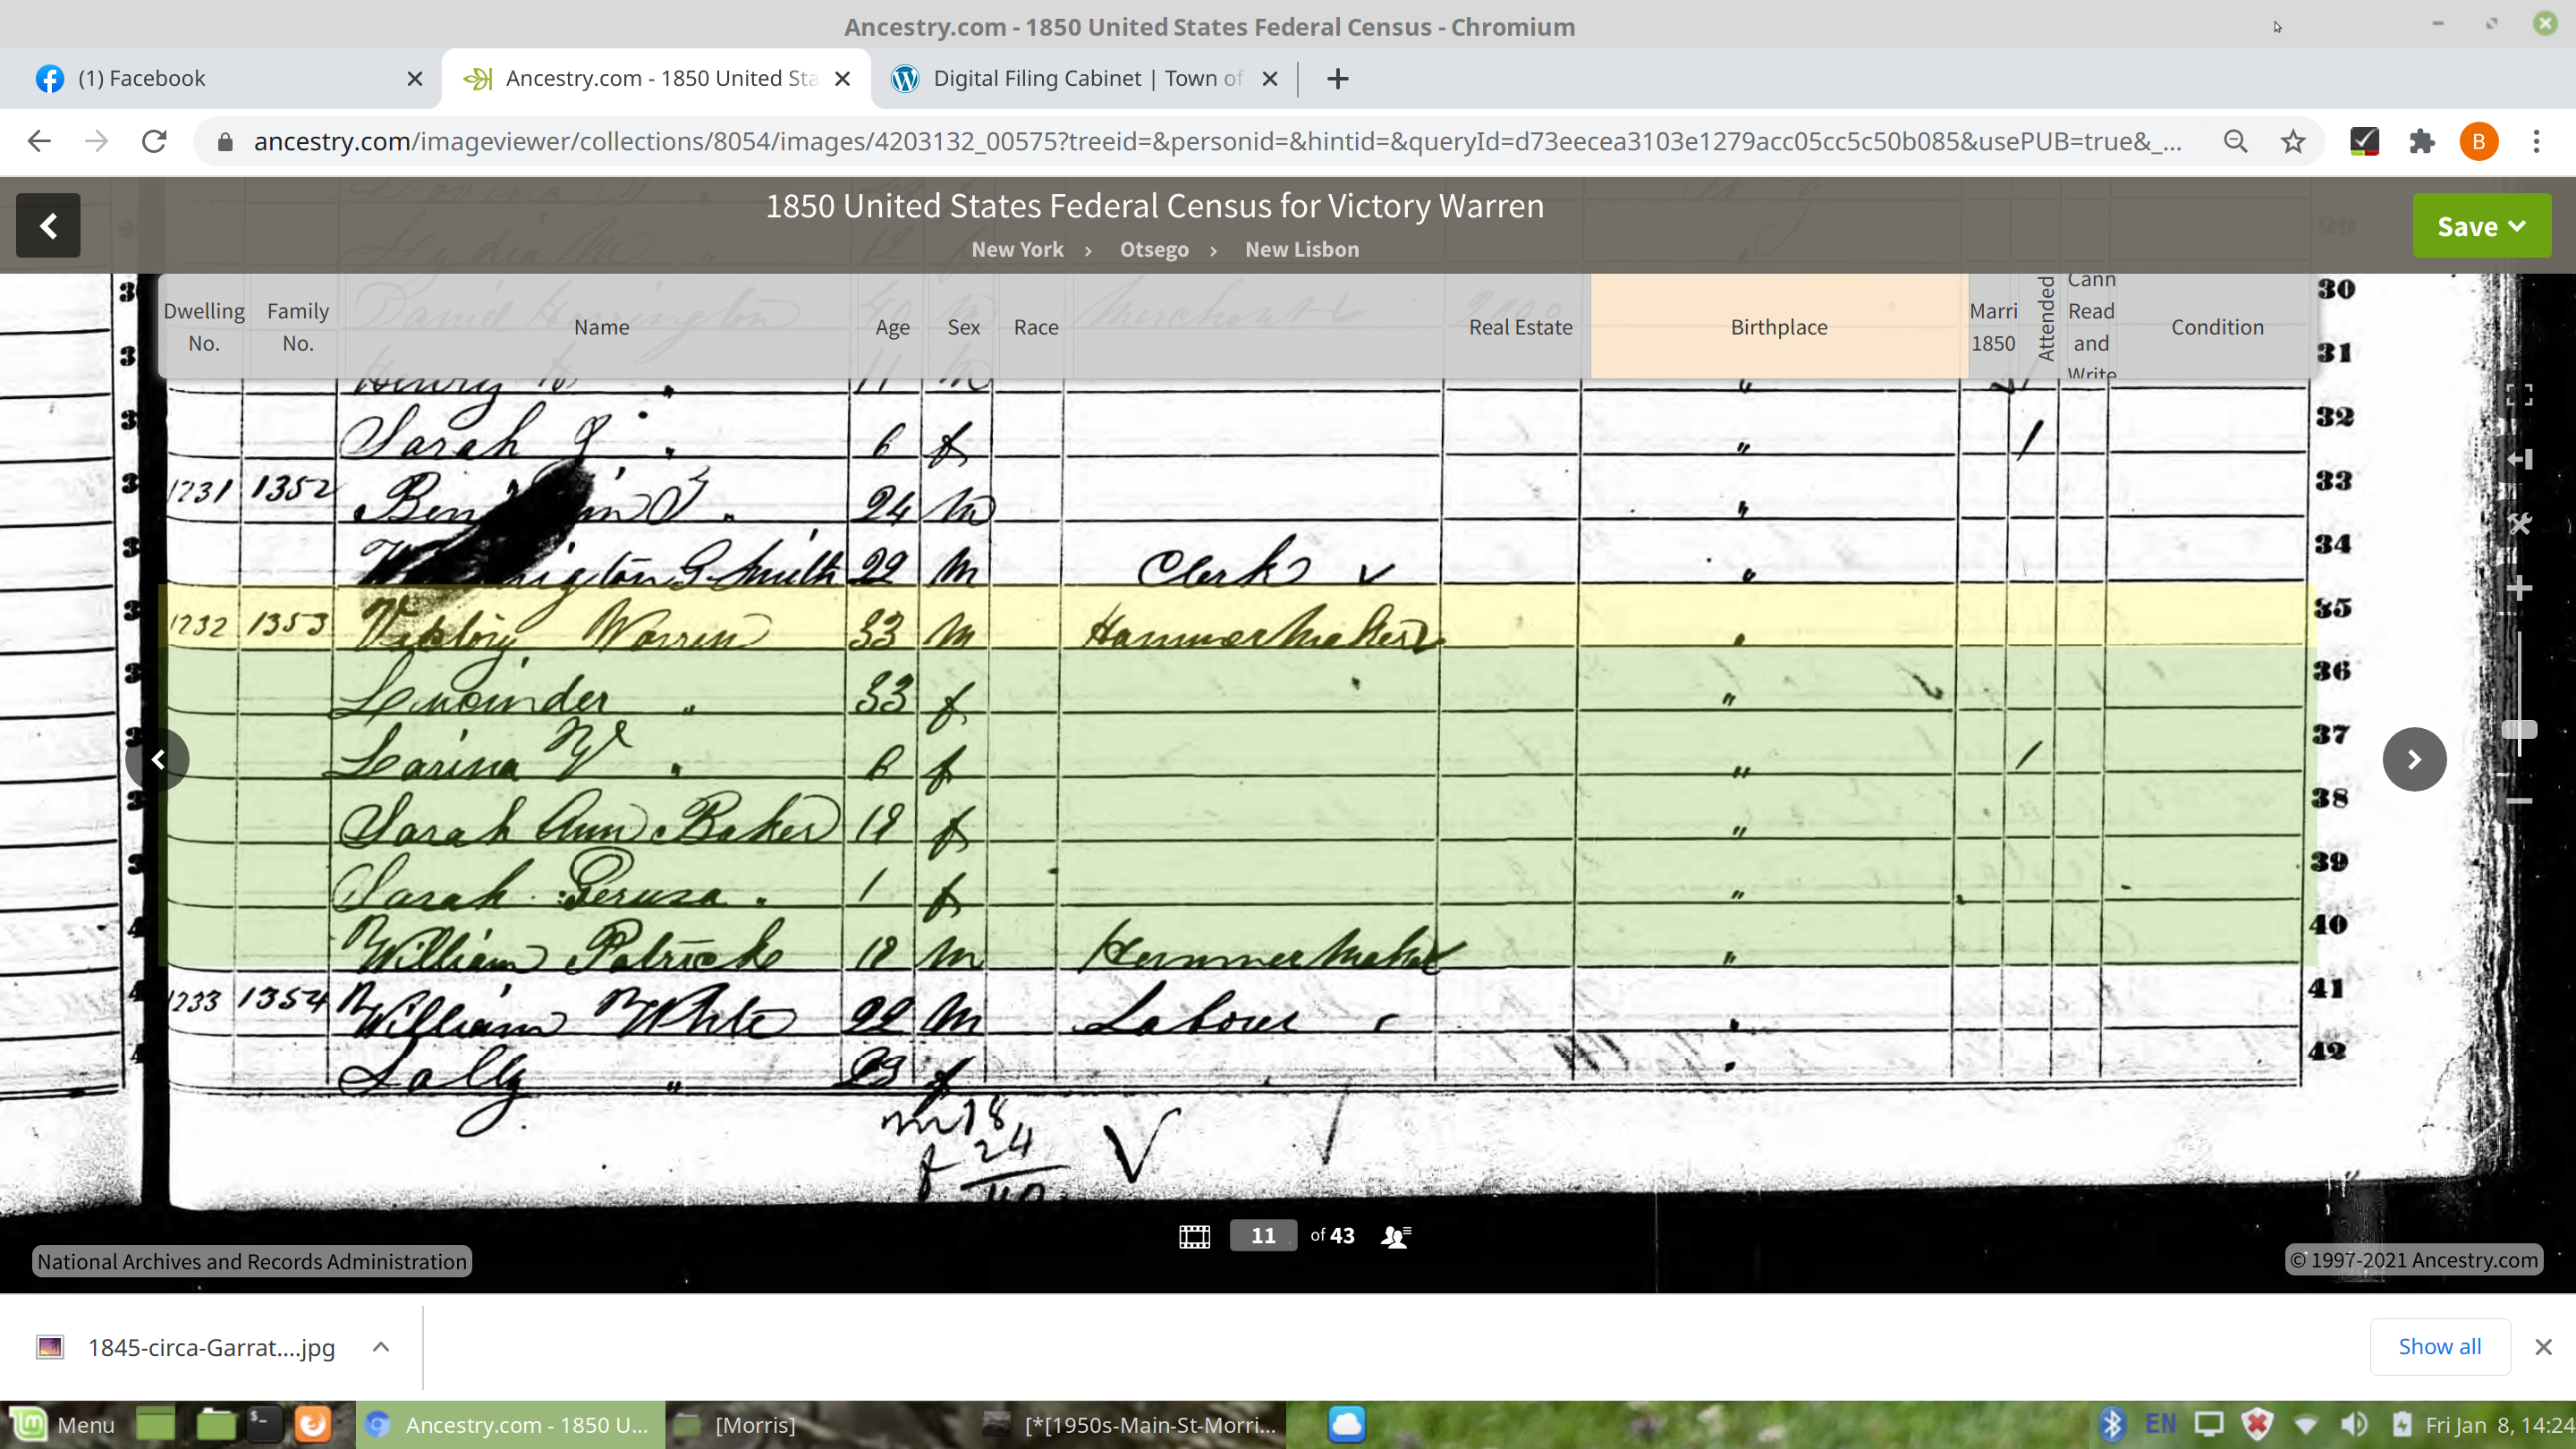 Ancestry.com - 1850 United States Federal Census - Chromium
(1) Facebook
Ancestry.com - 1850 United Sta
Digital Filing Cabinet | Town of
ancestry.com/imageviewer/collections/8054/images/4203132_00575?treeid=&personid=&hintid=&queryId=d73eecea3103e1279acc05cc5c50b085&usePUB=true&_...
B
1850 United States Federal Census for Victory Warren
New York › Otsego › New Lisbon
Save
Dwelling No. Family No. Name Age Sex Race Real Estate Birthplace Marri 1850 Attended Cann Read and Write Condition
29
Lydia M " 12 f
30
Daniel Harrington M Merchant
31
Henry " 11 m "
32 Sarah J " 6 f " /
1231 1352 24 M " 33
Smith 22 M Clerk " 34
1232 1353 Victory Warren 33 M Hammer Maker " 35
" 33 f " 36
" 6 f " / 37
Sarah Ann Baker 18 f " 38
Sarah " 1 f " 39
William Patrick 18 M Hammer Maker " 40
1233 1354 William White 22 M Labour " 41
Sally " 23 f " 42
m 18
f 24
National Archives and Records Administration
11 of 43
© 1997-2021 Ancestry.com
1845-circa-Garrat....jpg
Show all
Menu
Ancestry.com - 1850 U...
[Morris]
[*[1950s-Main-St-Morri...
EN
Fri Jan 8, 14:24